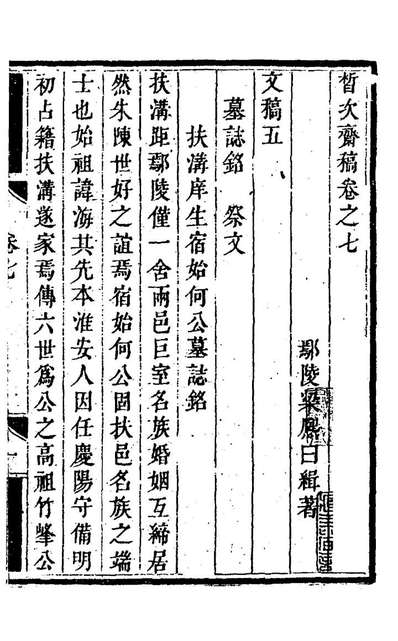 皙次齋稿卷之七
鄢陵梁熙曰緝著
文稿五
墓誌銘 祭文
扶溝庠生宿始何公墓誌銘
扶溝距鄢陵僅一舍兩邑巨室名族婚姻互締居
然朱陳世好之誼焉宿始何公固扶邑名族之端
士也始祖諱海其先本淮安人因任慶陽守備明
初占籍扶溝遂家焉傳六世為公之高祖竹峰公
卷七